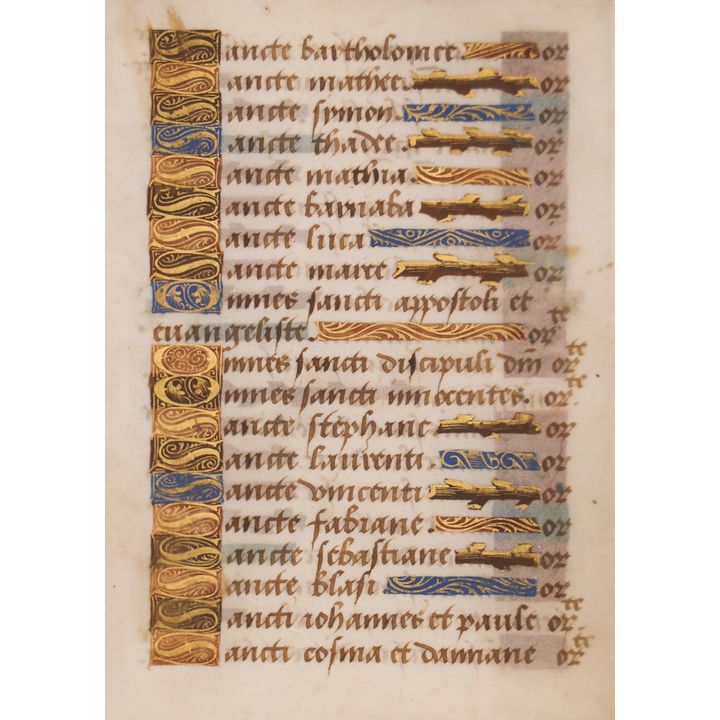 Sancte bartholomee. or
Sancte mathee. or
Sancte symon. or
Sancte thadee. or
Sancte mathia. or
Sancte barnaba or
Sancte luca or
Sancte marce or
Omnes sancti appostoli et
euangeliste. or te
Omnes sancti discipuli dm̄ or te
Omnes sancti innocentes. or te
Sancte stephane or
Sancte laurenti. or
Sancte vincenti or
Sancte fabiane. or
Sancte sebastiane or
Sancte blasi or
Sancti iohannes et paule or te
Sancti cosma et damiane or te